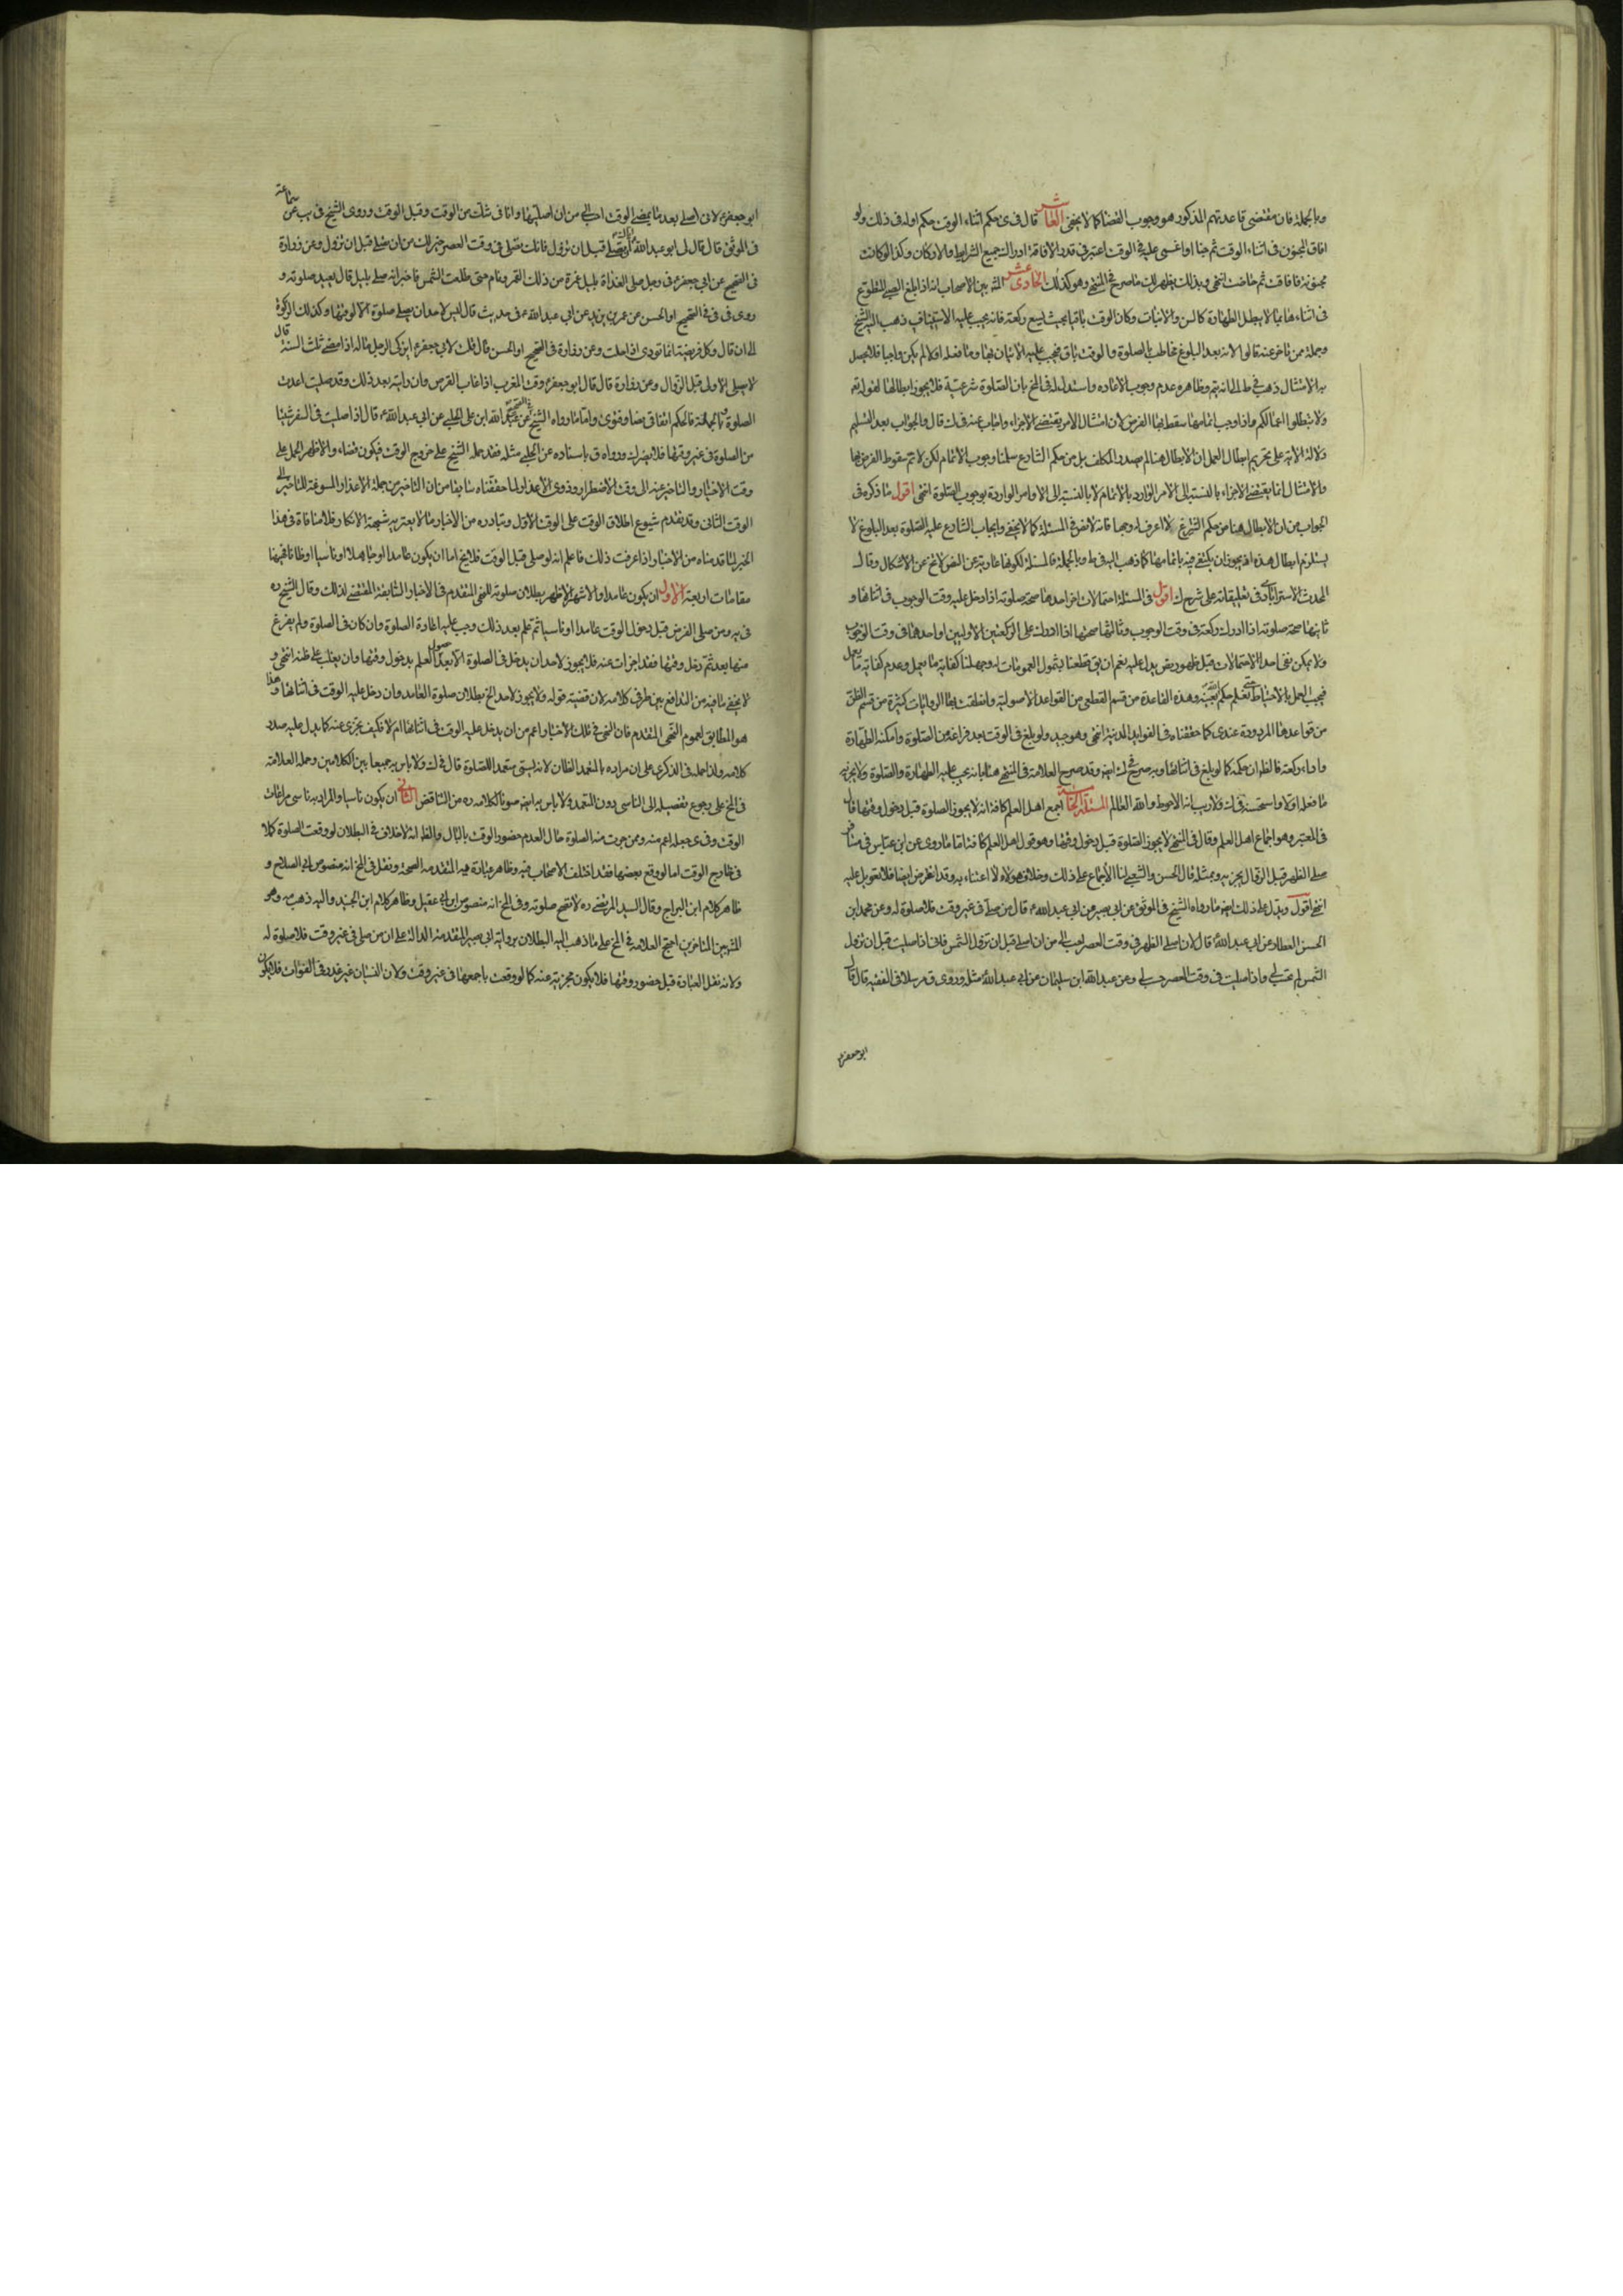 وبالجملة فان مقتضى قاعدتهم المذكور هو وجوب القضا كما لا يخفى العاشر قال فى ى حكم اثناء الوقت حكم اوله فى ذلك ولو
افاق المجنون فى اثناء الوقت ثم جن او اغمى عليه فى الوقت اعتبر فى قدر الافاقة ادراك جميع الشرايط والاركان وكذا لو كانت
مجنونة فافاقت ثم حاضت انتهى وبذلك يظهر لك ما صرح فى المنتهى وهو كذلك الحادى عشر المشهور بين الاصحاب انه اذا بلغ الصبى المتطوع
فى اثناءها بما لا يبطل الطهارة كالسن والانبات وكان الوقت باقيا بحيث يسع ركعة فانه يجب عليه الاستيناف ذهب اليه الشيخ
وجملة ممن تاخر عنه قالوا لانه بعد البلوغ مخاطب بالصلوة والوقت باق فيجب عليه الاتيان بها وما فعله اولا لم يكن واجبا فلا يحصل
به الامتثال وذهب فى ط الى انه يتم وظاهره عدم وجوب الاعاده واستدل له فى المخ بان الصلوة شرعية فلا يجوز ابطالها لقوله تعـ
ولا تبطلوا اعمالكم واذا وجب اتمامها سقط بها الفرض لان امتثال الامر يقتضى الاجزاء واجاب عنه فى ك قال والجواب بعد التسليم
دلالة الاية على تحريم ابطال العمل ان الابطال هنا لم يصدر من المكلف بل من حكم الشارع سلمنا وجوب الاتمام لكن لا نم سقوط الفرض بها
والامتثال انما يقتضى الاجزاء بالنسبة الى الامر الوارد بالاتمام لا بالنسبة الى الاوامر الواردة بوجوب الصلوة انتهى اقول ما ذكره فى
الجواب من ان الابطال هنا من حكم الشرع لا اعرف له وجها فانه لا نص فى المسئلة كما لا يخفى وايجاب الشارع عليه الصلوة بعد البلوغ لا
يستلزم ابطال هذه اذ يجوز ان يكتفى فيه باتمامها كما ذهب اليه فى ط وبالجملة فالمسئلة لكونها عارية عن النص لا تخ عن الاشكال وقال
المحدث الاسترابادى فى تعليقاته على شرح ك اقول فى المسئلة احتمالات اخر احدها صحة صلوته اذا دخل عليه وقت الوجوب فى اثنائها و
ثانيها صحة صلوته اذا ادرك ركعة فى وقت الوجوب وثالثها صحتها اذا ادرك على الركعتين الاوليين او احدهما فى وقت الوجوب
ولا يمكن نفى احد الاحتمالات قبل ظهور نص يدل عليه نعم ان بق قطعنا بشمول العمومات له وجهلنا كفاية ما يعمل وعدم كفاية ما يعمل
فيجب العمل بالاحتياط حتى نعلم حكم الله بعينه وهذه القاعدة من قسم القطعى من القواعد الاصولية وانطقت بها الروايات كثيرة من قسم الظن
من قواعدها المردودة عندى كما حققناه فى الفوايد المدنية انتهى وهو جيد ولو بلغ فى الوقت بعد فراغه من الصلوة وامكنه الطهارة
واداء ركعة فالظ ان حكمه كما لو بلغ فى اثنائها وبه صرح فى ك ايض وقد صرح العلامة فى المنتهى هنا بانه يجب عليه الطهارة والصلوة ولا يجزيه
ما فعله اولا واستحسنه فى ك ولا ريب انه الاحوط والله العالم المسئلة الخامسة اجمع اهل العلم كافة انه لا يجوز الصلوة قبل دخول وقتها قال
فى المعتبر وهو اجماع اهل العلم وقال فى المنتهى لا يجوز الصلوة قبل دخول وقتها وهو قول اهل العلم كافة الا ما روى عن ابن عباس فى مسافر
صلى الظهر قبل الزوال يجزيه وبمثله قال الحسن والشعبى لنا الاجماع على ذلك وخلاف هولاء لا اعتداء به وقد انقرض ايضا فلا تعويل عليه
انتهى اقول ويدل على ذلك ايض ما رواه الشيخ فى الموثق عن ابى بصير عن ابى عبد الله ع قال من صلى فى غير وقت فلا صلوة له وعن محمد ابن
الحسن العطار عن ابى عبد الله ع قال لان اصلى الظهر فى وقت العصر احب الى من ان اصلى قبل ان تزول الشمس فانى اذا صليت قبل ان تزول
الشمس لم تحتسب لى واذا صليت فى وقت العصر حسبت لى وعن عبد الله ابن سليمان عن ابى عبد الله ع مثله وروى ق مرسلا فى الفقيه قال قال
ابو جعفر ع
ابو جعفر ع لانى اصلى بعد ما يمضى الوقت احب الى من ان اصليها وانا فى شك من الوقت وقبل الوقت وروى الشيخ فى يب عن سماعة
فى الموثق قال قال لى ابو عبد الله ع اياك ان تصلى قبل ان تزول فانك تصلى فى وقت العصر خير لك من ان تصلى قبل ان تزول وعن زرارة
فى الصحيح عن ابى جعفر ع فى رجل صلى الغداة بليل غره من ذلك القمر ونام حتى طلعت الشمس فاخبر انه صلى بليل قال يعيد صلوته و
روى فى فى الصحيح او الحسن عن عمر بن يزيد عن ابى عبد الله ع فى حديث قال ليس لاحد ان يصلى صلوة الا لوقتها وكذلك الزكوة
الى ان قال وكل فريضة انما تودى اذا حلت وعن زرارة فى الصحيح او الحسن قال قلت لابى جعفر ع ايزكى الرجل ماله اذا مضى ثلث السنة قال
لا يصلى الاولى قبل الزوال وعن زرارة قال قال ابو جعفر ع وقت المغرب اذا غاب القرص فان رايته بعد ذلك وقد صليت اعدت
الصلوة وبالجملة فالحكم اتفاقى نصا وفتوى واما ما رواه الشيخ فى الصحيح عن عبيد الله ابن على الحلبى عن ابى عبد الله ع قال اذا صليت فى السفر شيئا
من الصلوة فى غير وقتها فلا يضرك ورواه ق باسناده عن الحلبى مثله فقد حمله الشيخ على خروج الوقت فيكون قضاء والاظهر الحمل على
وقت الاختيار والتاخير عنه الى وقت الاضطرار وذوى الاعذار لما حققناه سابقا من ان التاخير من جملة الاعذار المسوغة للتاخير الى
الوقت الثانى وقد تقدم شيوع اطلاق الوقت على الوقت الاول وتبادره من الاخبار مما لا يعتريه شبهة الانكار فلا منافاة فى هذا
الخبر لما قدمناه من الاخبار اذا عرفت ذلك فاعلم انه لو صلى قبل الوقت فلا يخ اما ان يكون عامدا او جاهلا او ناسيا او ظانا فهيهنا
مقامات اربعة الاول ان يكون عامدا والاشهر الاظهر بطلان صلوته للنهى المتقدم فى الاخبار السابقة المقتضى لذلك وقال الشيخ ره
فى يه ومن صلى الفرض قبل دخول الوقت عامدا او ناسيا ثم علم بعد ذلك وجب عليه اعادة الصلوة وان كان فى الصلوة ولم يفرغ
منها بعد ثم دخل وقتها فقد اجزات عنه فلا يجوز لاحد ان يدخل فى الصلوة الا بعد حصول العلم بدخول وقتها وان يغلب على ظنه انتهى و
لا يخفى ما فيه من التدافع بين طرفى كلامه لان قضية قوله ولا يجوز لاحد الخ بطلان صلوة العامد وان دخل عليه الوقت فى اثنائها وهذا
هو المطابق لعموم النهى المتقدم فان النهى فى تلك الاخبار اعم من ان يدخل عليه الوقت فى اثنائها ام لا فكيف تجزى عنه كما يدل عليه صدر
كلامه ولذا حمله فى الذكرى على ان مراده بالتعمد الظان لانه يسمى متعمد الصلوة قال فى ك ولا باس به جمعا بين الكلامين وحمله العلامة
فى المخ على رجوع تفصيله الى الناسى دون المتعمد ولا باس به ايض صونا لكلامه ره من التناقض الثانى ان يكون ناسيا والمراد به ناسى مراعات
الوقت وفى ى جعله اعم منه ومن جرت منه الصلوة حال العدم حضور الوقت بالبال والظ انه لا خلاف فى البطلان لو وقعت الصلوة كملا
فى خارج الوقت اما لو وقع بعضها فقد اختلف الاصحاب فيه وظاهر عبارة يه المتقدمة الصحة ونقل فى المخ انه منصوص ابى الصلاح و
ظاهر كلام ابن البراج وقال السيد المرتضى ره لا تصح صلوته وفى المخ انه منصوص ابن ابى عقيل وظاهر كلام ابن الجنيد واليه ذهب ى وهو
المشهور بين المتاخرين احتج العلامه فى المخ على ما ذهب اليه البطلان برواية ابى بصير المتقدمة الدالة على ان من صلى فى غير وقت فلا صلوة له
ولانه نقل العبادة قبل حضور وقتها فلا يكون مجزية عنه كما لو وقعت باجمعها فى غير وقت ولان النسيان غير عذر فى الفوات فلا يكون